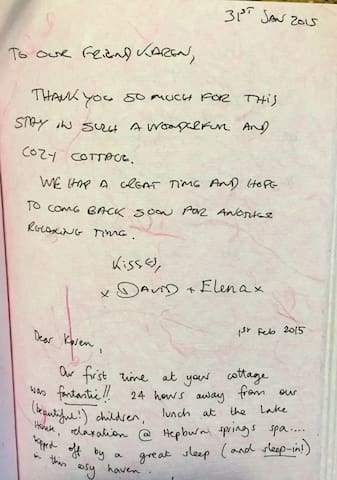 31ST JAN 2015
TO OUR FRIEND KAREN,
THANK YOU SO MUCH FOR THIS
STAY IN SUCH A WONDERFUL AND
COZY COTTAGE.
WE HAD A GREAT TIME AND HOPE
TO COME BACK SOON FOR ANOTHER
RELAXING TIME.
KISSES,
x DAVID + Elena x
1st Feb 2015
Dear Karen,
Our first time at your cottage
was fantastic!! 24 hours away from our
(beautiful!) children, lunch at the Lake
House, relaxation @ Hepburn springs spa....
topped off by a great sleep (and sleep-in!)
in this cosy haven.